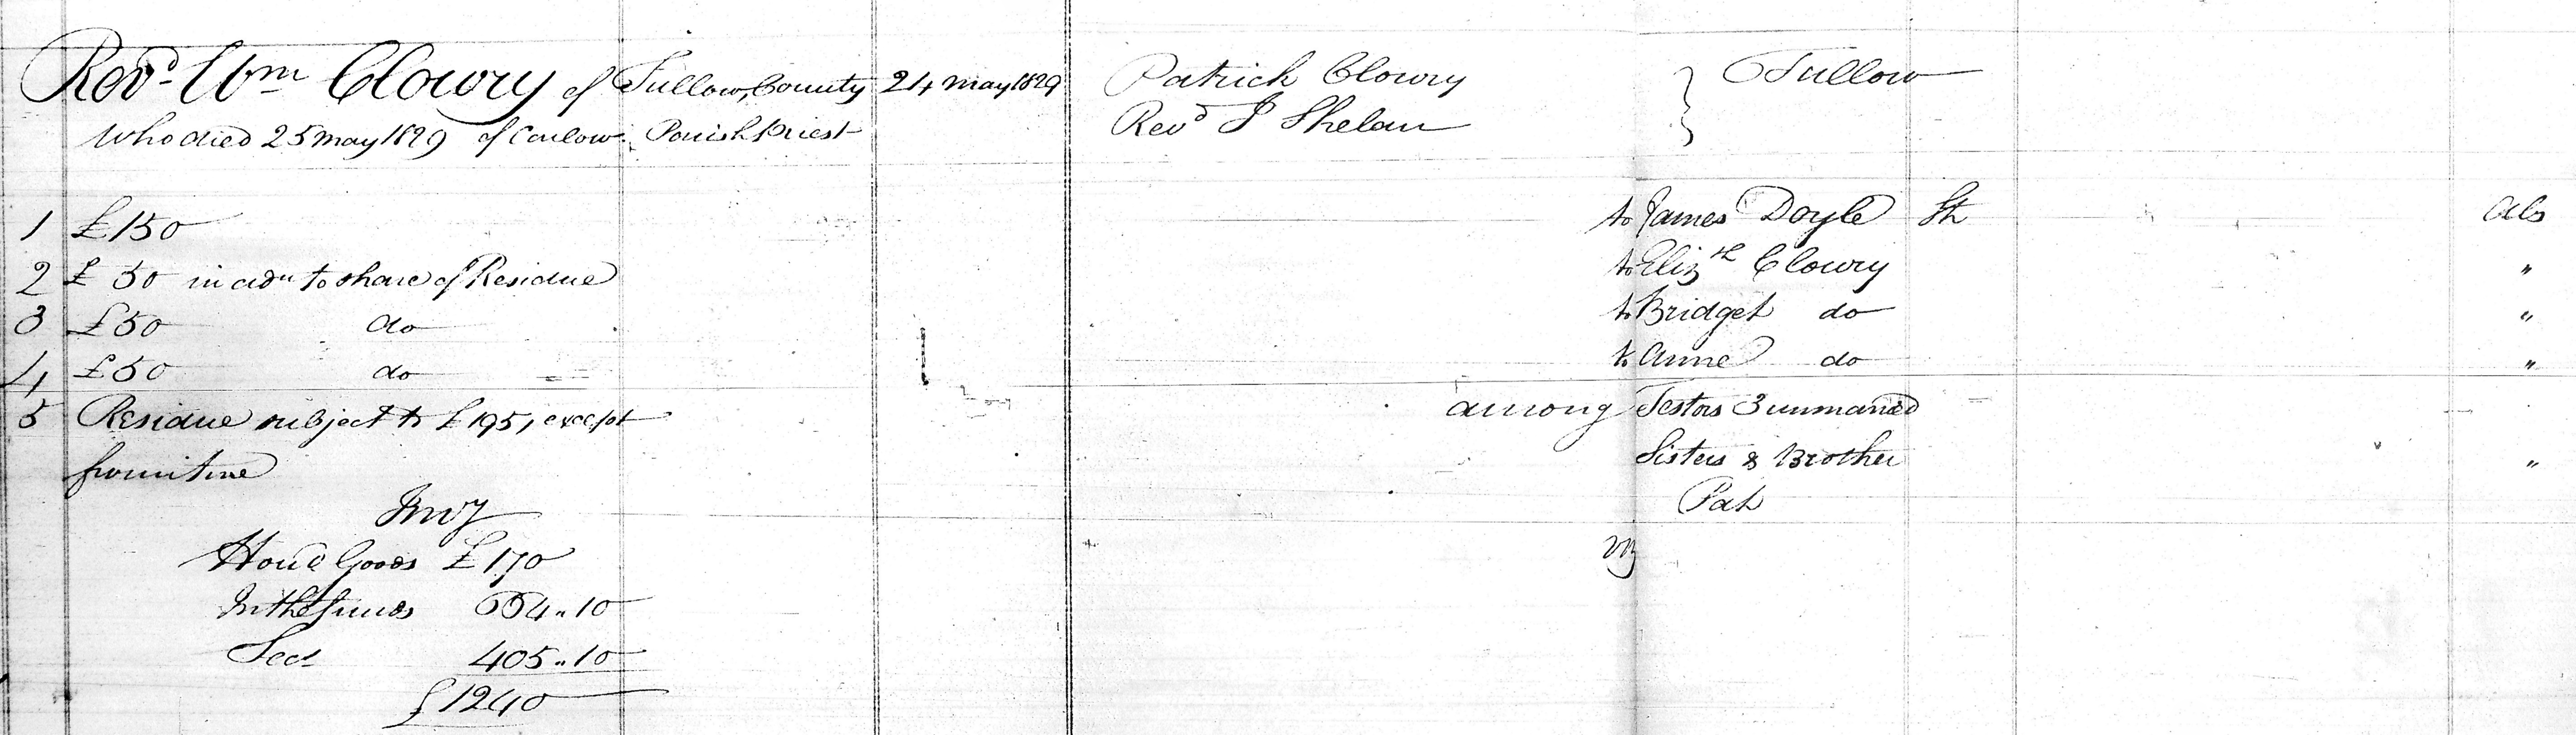 Revd. Wm Clowry of Tullow, County 24 May 1829 Patrick Clowry } Tullow
Who died 25 May 1829 of Carlow. Parish Priest Revd J Phelan
1 £150 to James Doyle St Abs
2 £50 in adn to share of Residue to Elizth Clowry "
3 £50 do to Bridget do "
4 £50 do to Anne do "
5 Residue subject to £195, except among Testors 3 unmarried
furniture Sisters & Brother "
Invy Pat
House Goods £170
In the funds 664.. 10
Secs 405.. 10
£1240